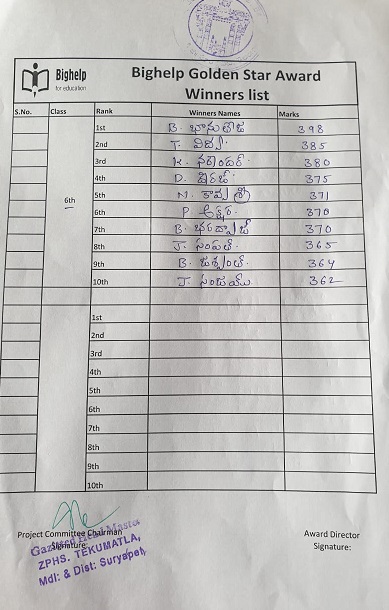 Bighelp
for education
Bighelp Golden Star Award
Winners list
S.No. Class Rank Winners Names Marks
1st B. భానుతేజ 398
2nd T. విద్య 385
3rd K. నరేందర్ 380
4th D. విరాజ్ 375
5th M. కావ్య శ్రీ 371
6th 6th P. అక్షర 370
7th B. భరద్వాజ్ 370
8th J. సంపత్ 365
9th B. జశ్వంత్ 364
10th J. సంజయ్ 362
1st
2nd
3rd
4th
5th
6th
7th
8th
9th
10th
Project Committee Chairman
Signature:
Award Director
Signature:
Gazetted Head Master
ZPHS. TEKUMATLA,
Mdl: & Dist: Suryapet,